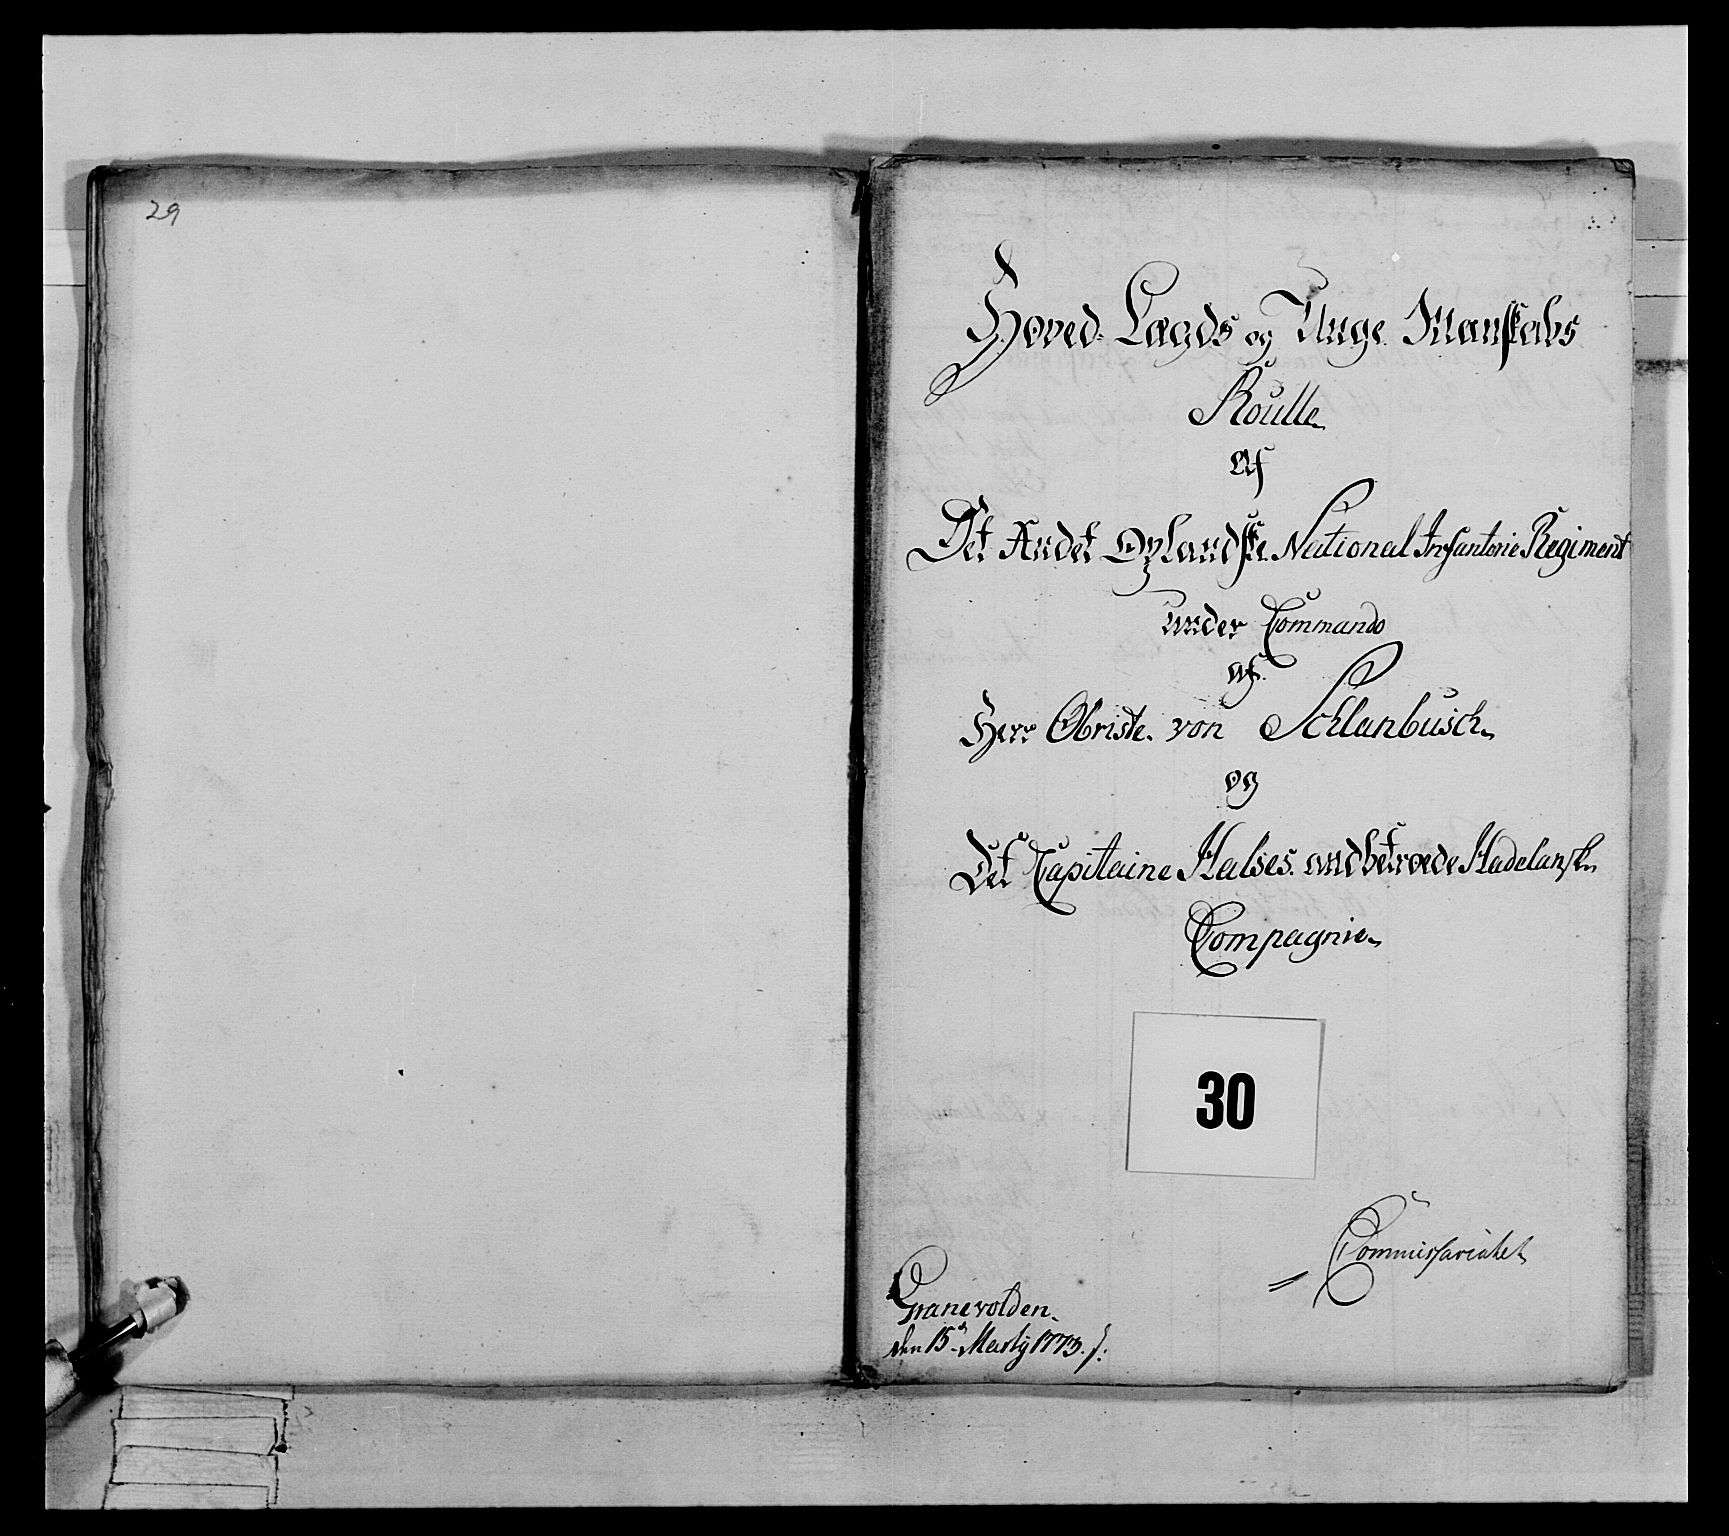 29
Hoved- Lægds og Unge Manskabs
Roulle
Af
Det Andet Oplandske National Infanterie Regiment
under Commando
af
Herr Obriste von Schlanbusch
og
Det Capitaine Halses andbetroede Hadelanske
Compagnie
30
Commissariatet
Granevolden
den 15de Marty 1773 /: